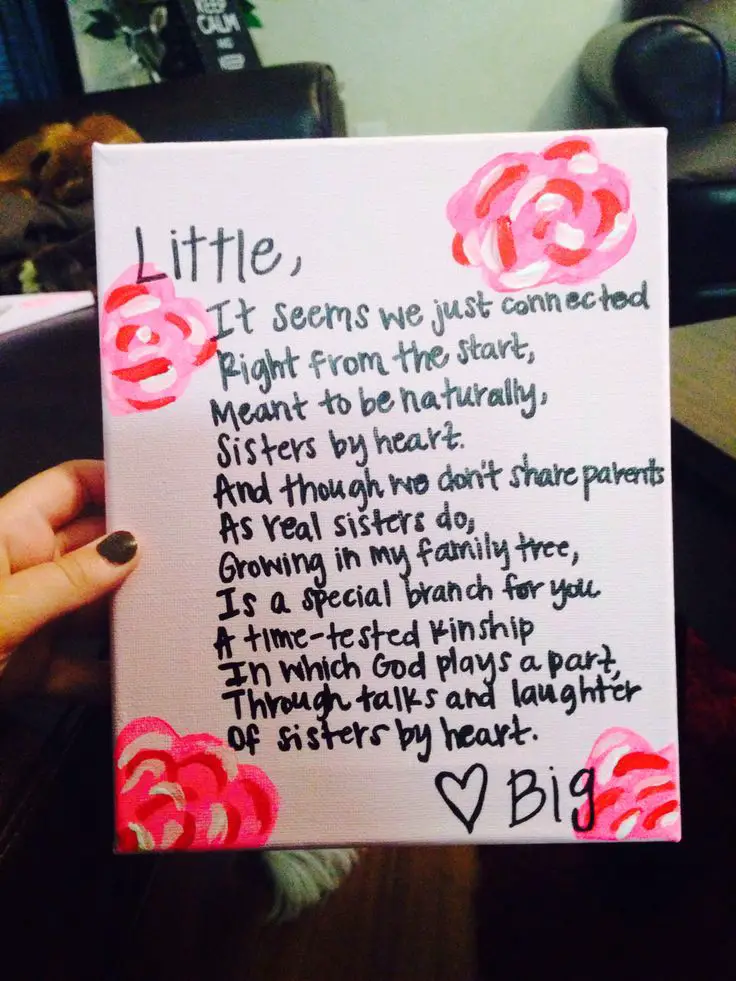 KEEP
CALM
AND
Little,
It seems we just connected
Right from the start,
Meant to be naturally,
Sisters by heart.
And though we don't share parents
As real sisters do,
Growing in my family tree,
Is a special branch for you
A time-tested kinship
In which God plays a part,
Through talks and laughter
Of sisters by heart.
♡ Big